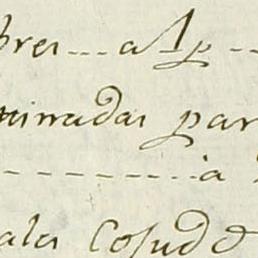 bres --- a 1p --
minadas par
--------- à
alas Cosudo